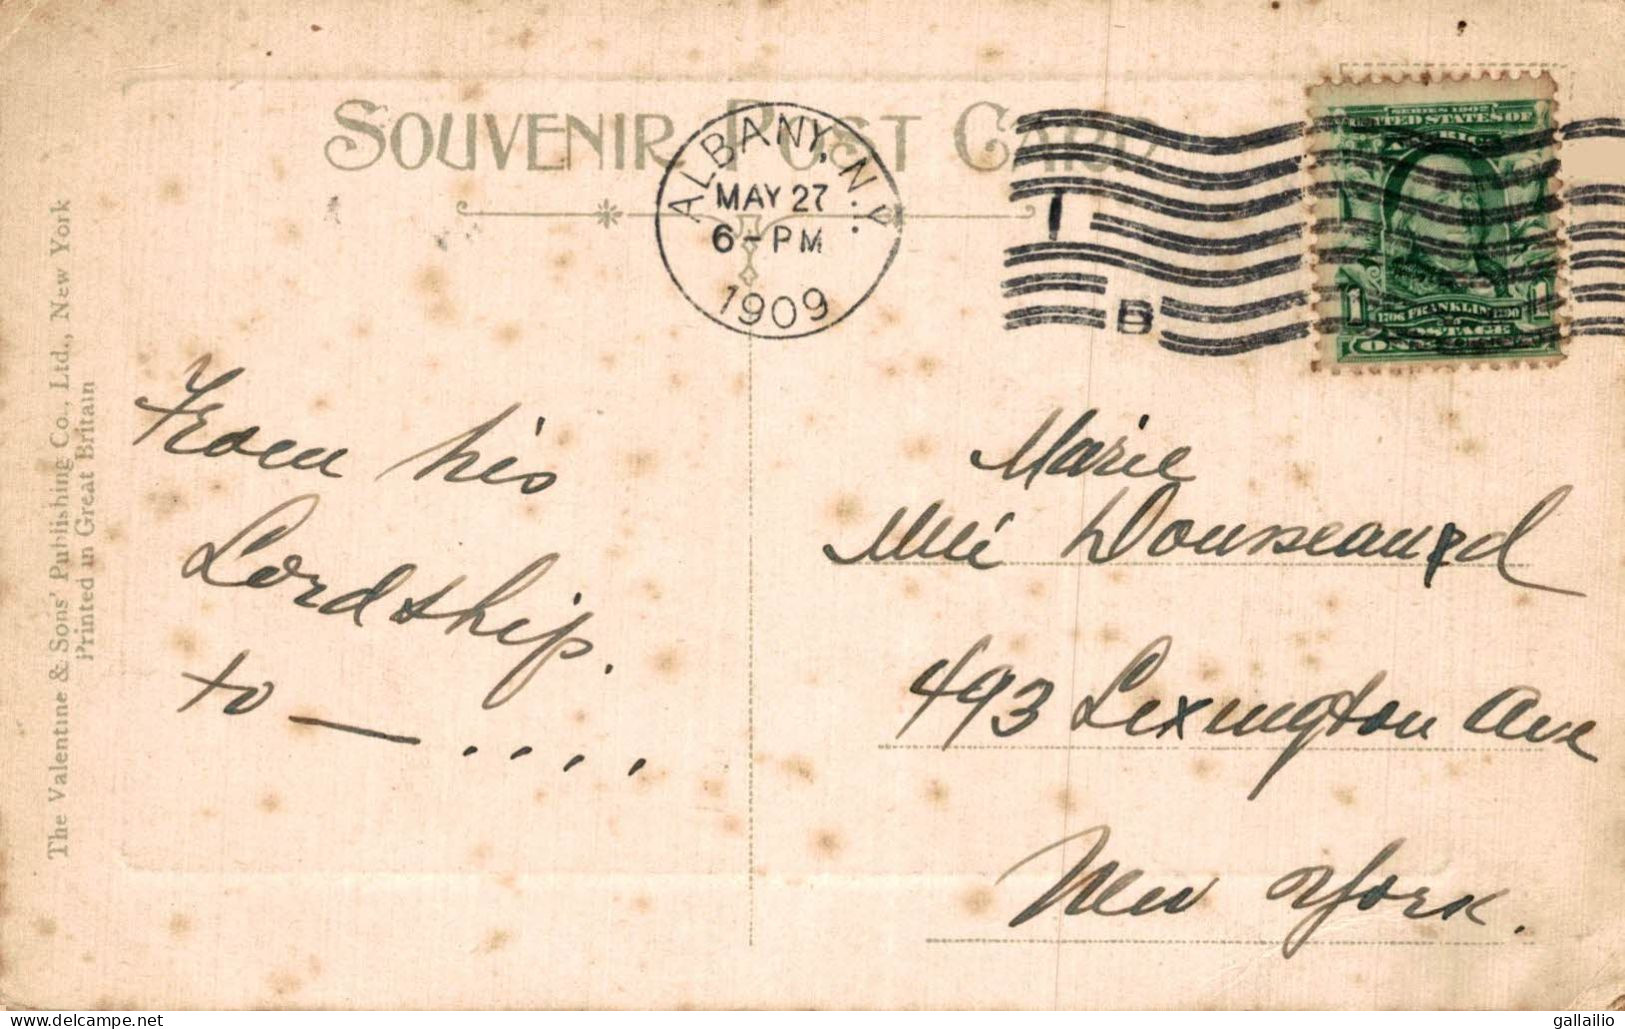 SOUVENIR POST CARD
ALBANY, N.Y.
MAY 27
6-PM
1909
1
B
SERIES 1902
UNITED STATES OF
1706 FRANKLIN 1790
POSTAGE
The Valentine & Sons' Publishing Co., Ltd., New York
Printed in Great Britain
From his
Lordship.
to — ....
Marie
Mlle
493 Lexington Ave
New York.
delcampe.net
gallailio